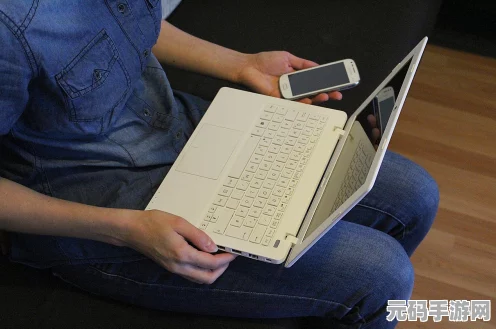 元码手游网